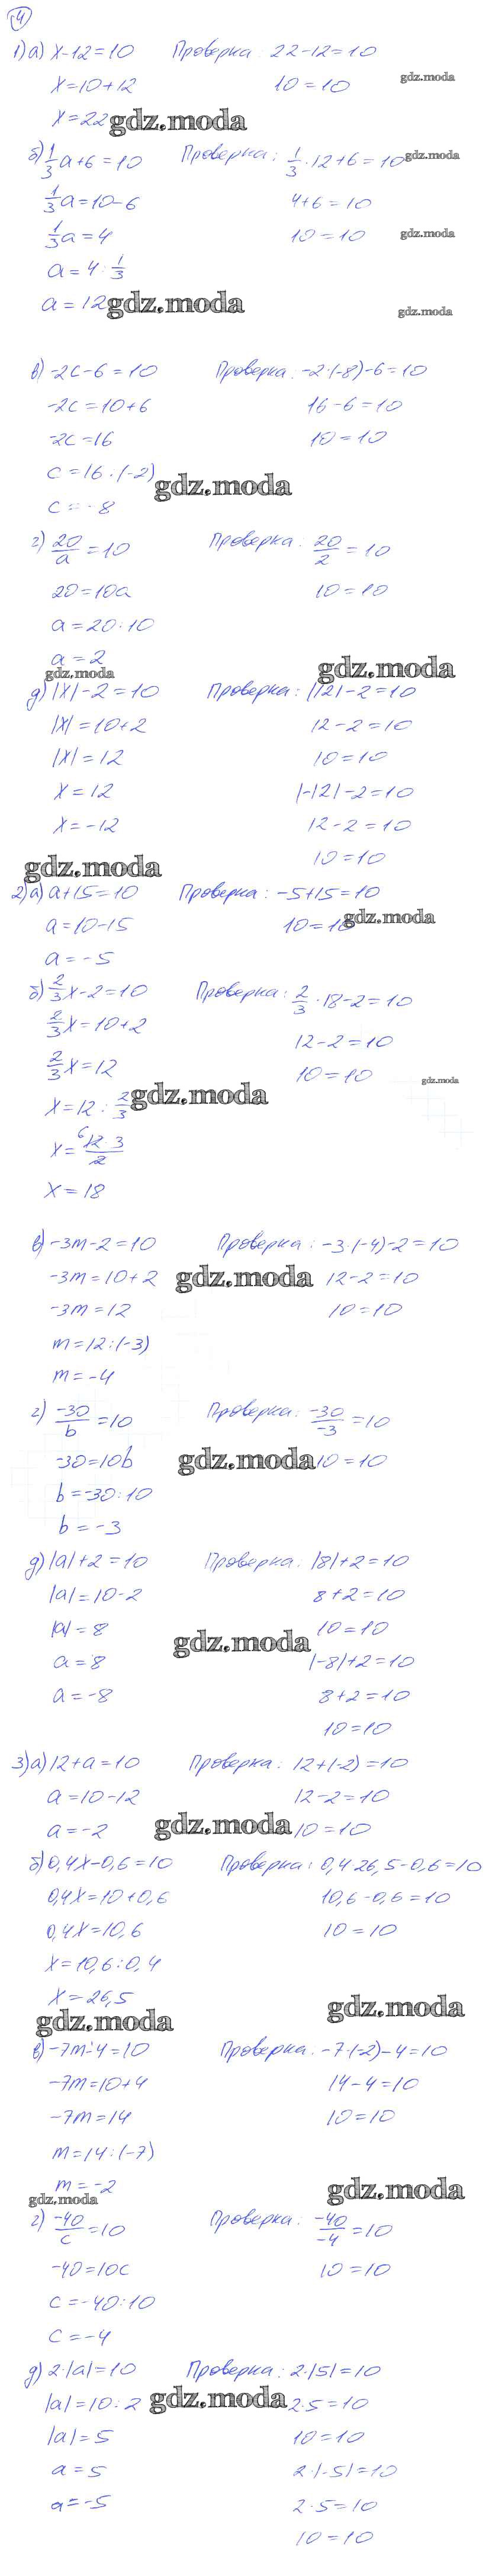 4
1) а) x-12=10 Проверка: 22-12=10
x=10+12 10=10
gdz.moda
x=22
gdz.moda
б) 1/3 a+6=10 Проверка: 1/3·12+6=10
gdz.moda
1/3 a=10-6 4+6=10
1/3 a=4 10=10
gdz.moda
a=4:1/3
a=12
gdz.moda
gdz.moda
в) -2c-6=10 Проверка: -2·(-8)-6=10
-2c=10+6 16-6=10
-2c=16 10=10
c=16·(-2)
gdz.moda
c=-8
г) 20/a=10 Проверка: 20/2=10
20=10a 10=10
a=20:10
a=2
gdz.moda
gdz.moda
д) |x|-2=10 Проверка: |12|-2=10
|x|=10+2 12-2=10
|x|=12 10=10
x=12 |-12|-2=10
x=-12 12-2=10
10=10
gdz.moda
2) а) a+15=10 Проверка: -5+15=10
a=10-15 10=10
gdz.moda
a=-5
б) 2/3 x-2=10 Проверка: 2/3·18-2=10
2/3 x=10+2 12-2=10
2/3 x=12 10=10
gdz.moda
gdz.moda
x=12:2/3
x=6 12·3/2
x=18
в) -3m-2=10 Проверка: -3·(-4)-2=10
-3m=10+2 12-2=10
gdz.moda
-3m=12 10=10
m=12:(-3)
m=-4
г) -30/b=10 Проверка: -30/-3=10
-30=10b 10=10
gdz.moda
b=-30:10
b=-3
д) |a|+2=10 Проверка: |8|+2=10
|a|=10-2 8+2=10
|a|=8 10=10
gdz.moda
a=8 |-8|+2=10
a=-8 8+2=10
10=10
3) а) 12+a=10 Проверка: 12+(-2)=10
a=10-12 12-2=10
a=-2 10=10
gdz.moda
б) 0,4x-0,6=10 Проверка: 0,4·26,5-0,6=10
0,4x=10+0,6 10,6-0,6=10
0,4x=10,6 10=10
x=10,6:0,4
x=26,5
gdz.moda
gdz.moda
в) -7m-4=10 Проверка: -7·(-2)-4=10
-7m=10+4 14-4=10
-7m=14 10=10
m=14:(-7)
m=-2
gdz.moda
gdz.moda
г) -40/c=10 Проверка: -40/-4=10
-40=10c 10=10
c=-40:10
c=-4
д) 2·|a|=10 Проверка: 2·|5|=10
|a|=10:2 2·5=10
gdz.moda
|a|=5 10=10
a=5 2·|-5|=10
a=-5 2·5=10
10=10